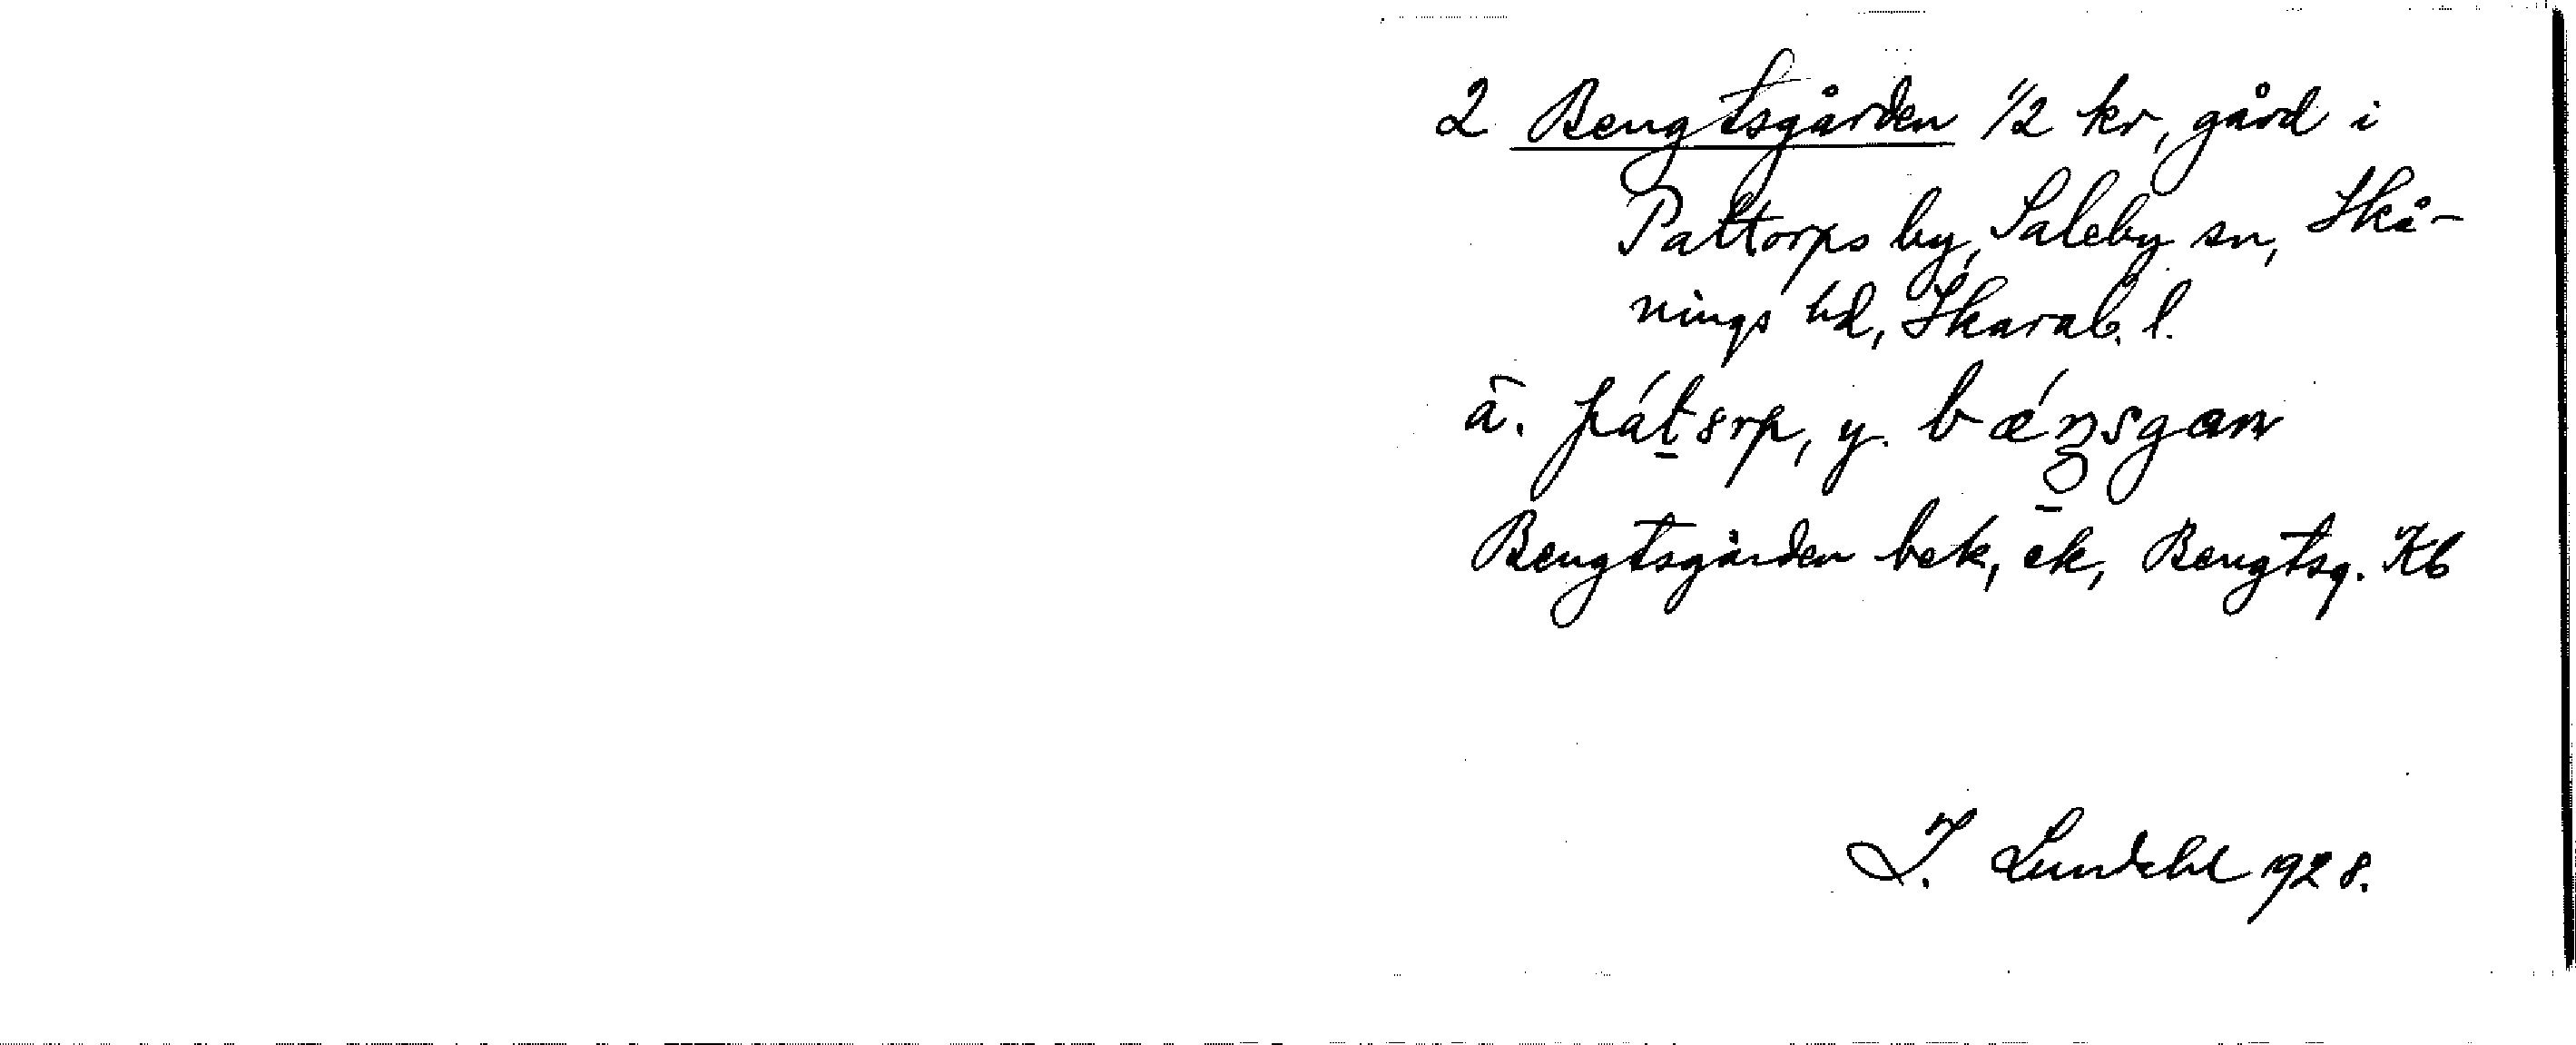 2 Bengtsgården 1/2 kr, gård i
Pattorps by, Saleby sn, Skå-
nings hd, Skarab. l.
ä. pát8rp, y. bǽŋsgan
Bengtsgården bek, ek, Bengtsg. Kb
I. Lundahl 1928.